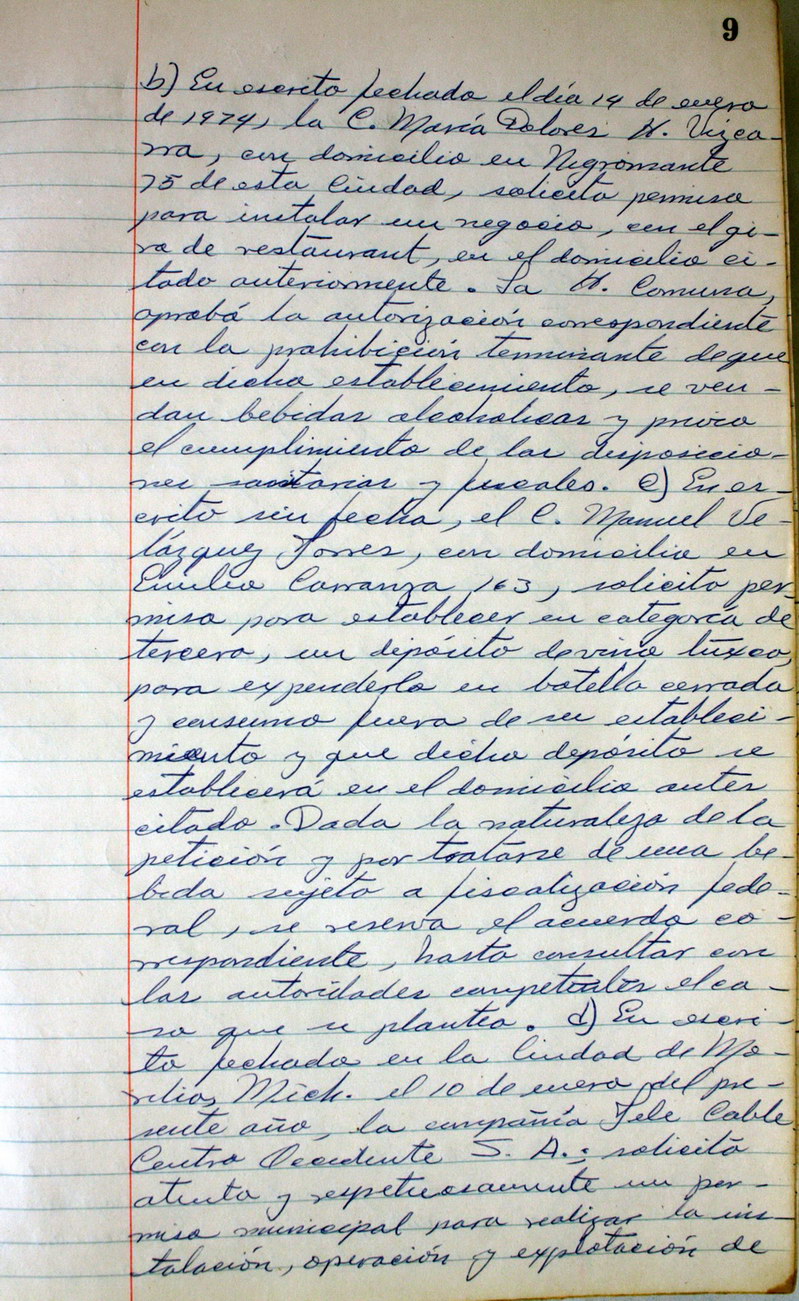 9
b) En escrito fechado el día 14 de enero
de 1974, la C. María Dolores H. Vizca-
rra, con domicilio en Nigromante
75 de esta Ciudad, solicita permiso
para instalar un negocio, con el gi-
ro de restaurant, en el domicilio ci-
tado anteriormente. La H. Comuna,
aprobó la autorización correspondiente
con la prohibición terminante de que
en dicho establecimiento, se ven-
dan bebidas alcoholicas y previo
el cumplimiento de las disposicio-
nes sanitarias y fiscales. C) En es-
crito sin fecha, el C. Manuel Ve-
lázquez Torres, con domicilio en
Emilio Carranza 163, solicita per-
miso para establecer en categoría de
tercera, un depósito de vino tuxca,
para expenderlo en botella cerrada
y consumo fuera de su estableci-
miento y que dicho depósito se
establecerá en el domicilio antes
citado. Dada la naturaleza de la
petición y por tratarse de una be-
bida sujeta a fiscalización fede-
ral, se reserva el acuerdo co-
rrespondiente, hasta consultar con
las autoridades competentes el ca-
so que se plantea. d) En escri-
to fechado en la Ciudad de Mo-
relia, Mich. el 10 de enero del pre-
sente año, la compañía Tele Cable
Centro Occidente S. A.: solicita
atenta y respetuosamente un per-
miso municipal para realizar la ins-
talación, operación y explotación de